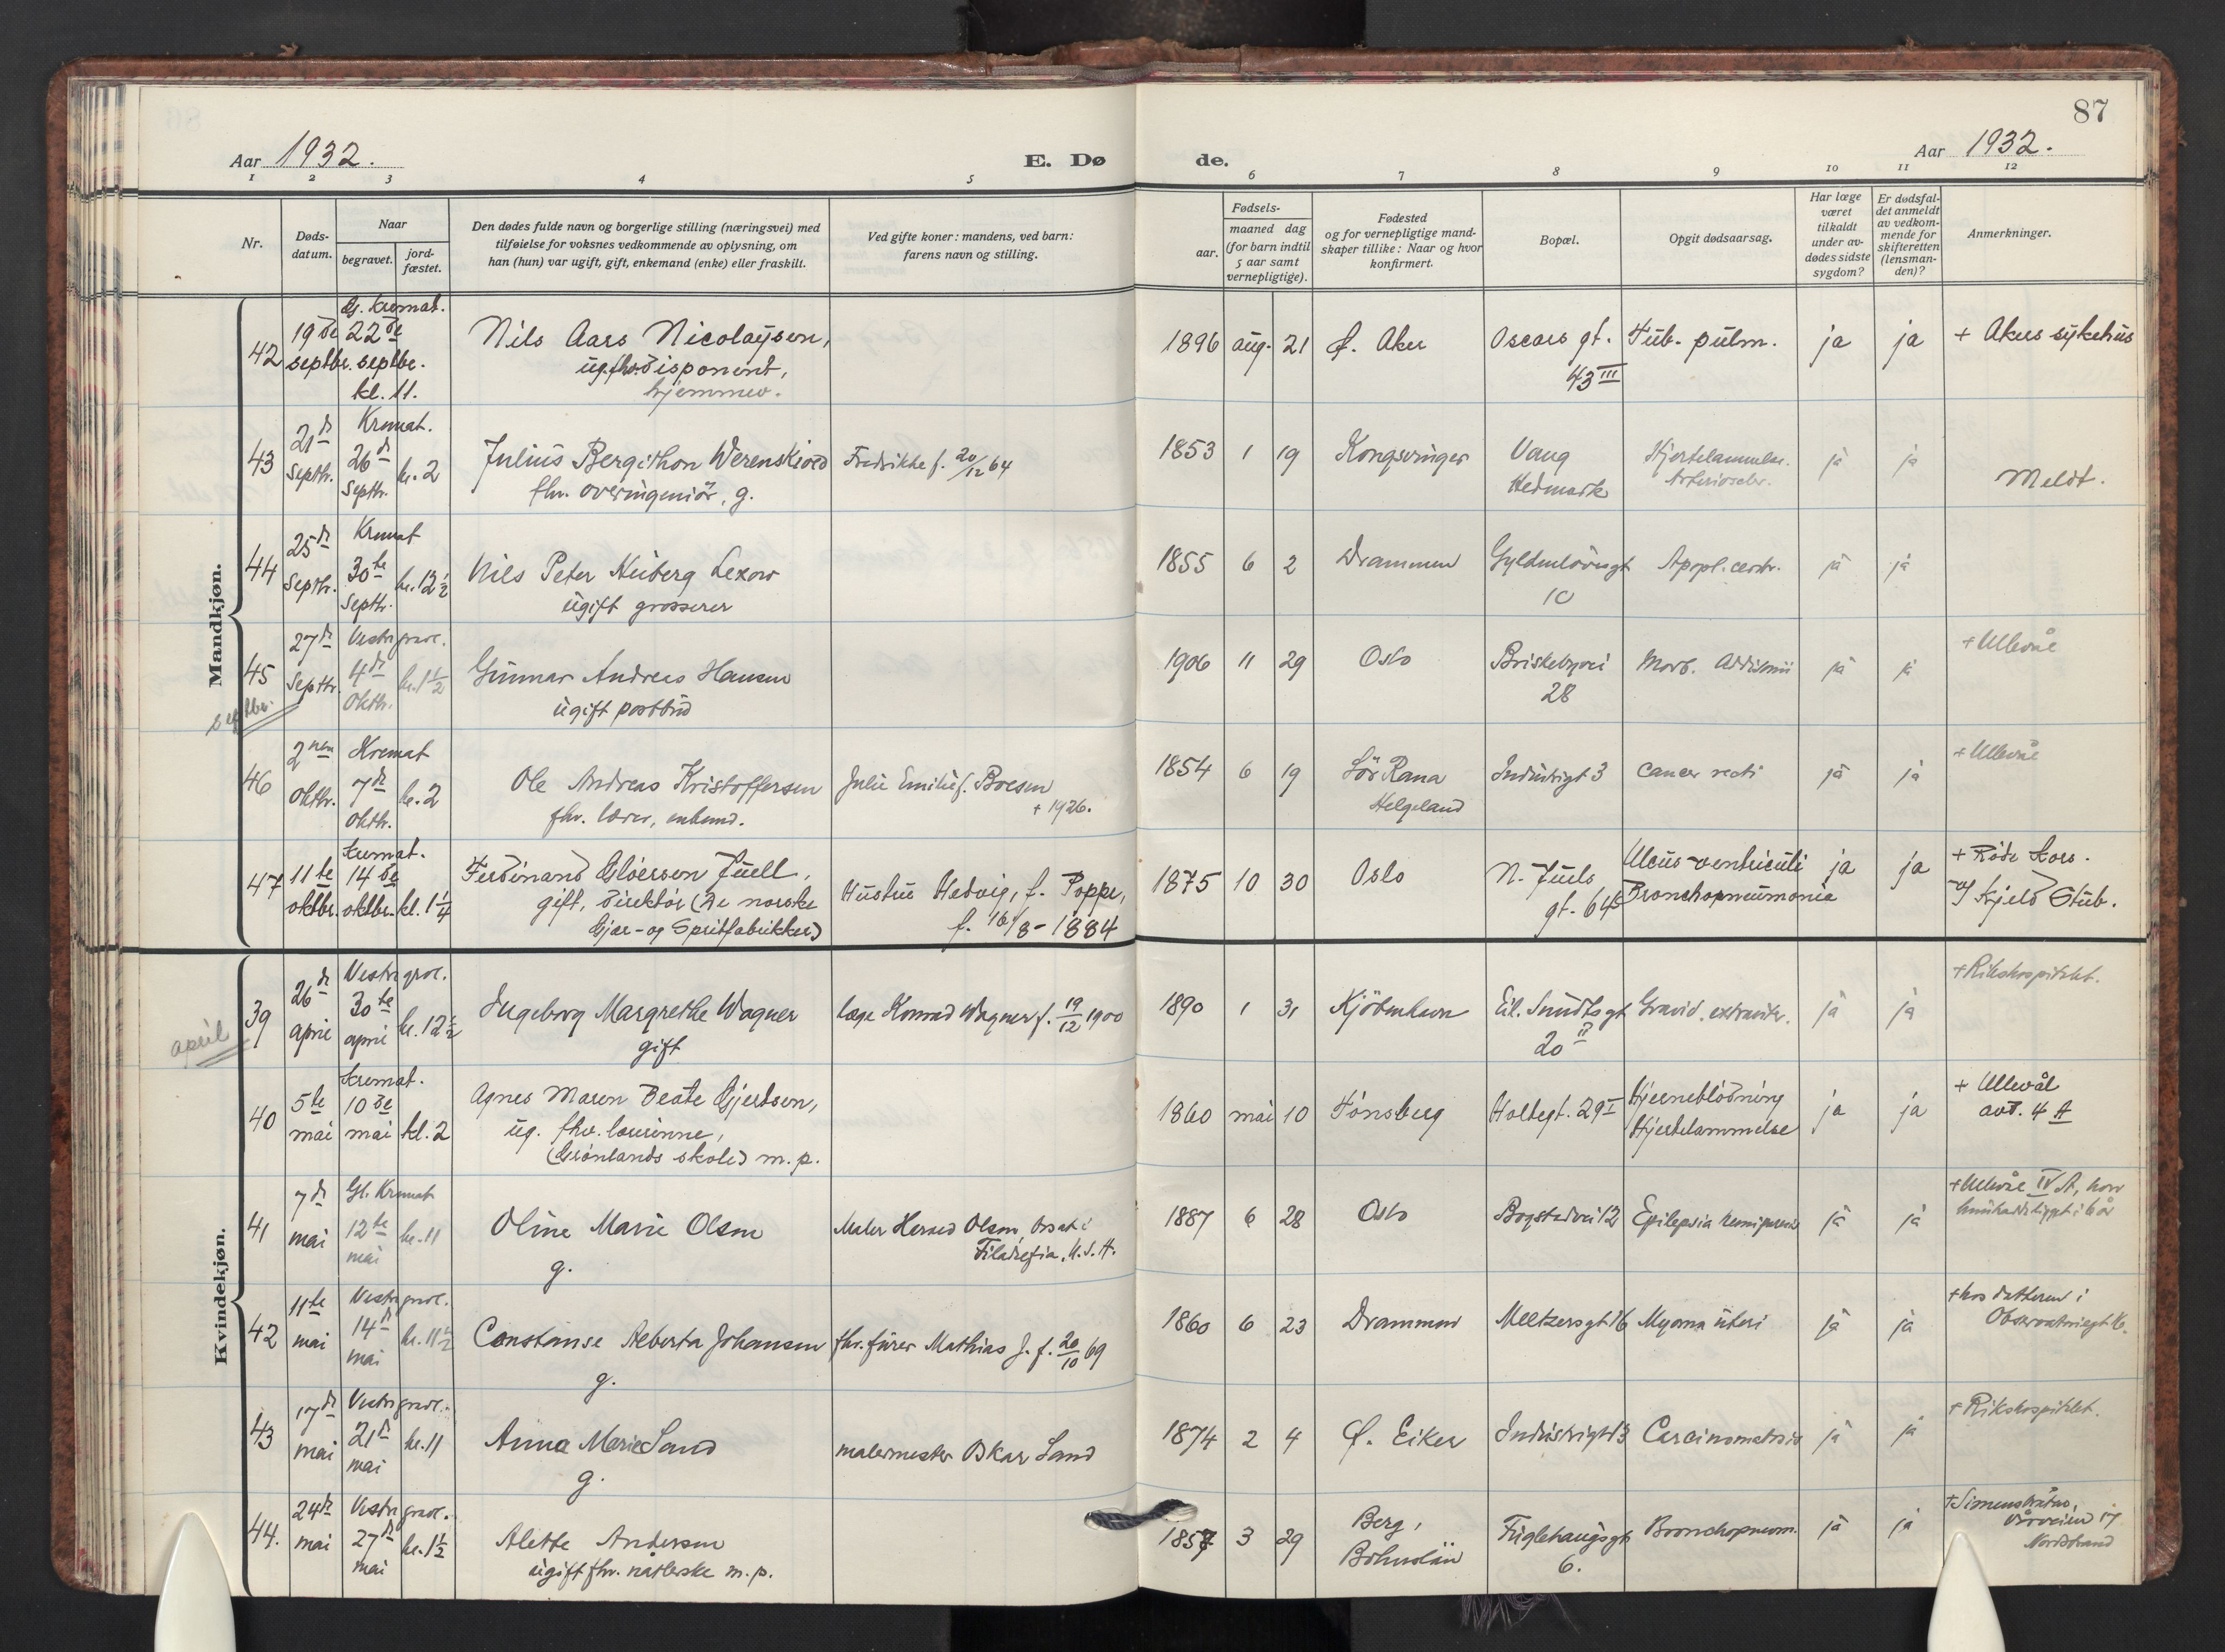 87
Aar 1932.
E. Døde.
Aar 1932.
1 2 3 4 5 6 7 8 9 10 11 12
Nr.
Døds-
datum.
Naar
begravet.
jord-
fæstet.
Den dødes fulde navn og borgerlige stilling (næringsvei) med
tilføielse for voksnes vedkommende av oplysning, om
han (hun) var ugift, gift, enkemand (enke) eller fraskilt.
Ved gifte koner: mandens, ved barn:
farens navn og stilling.
Fødsels-
aar.
maaned dag
(for barn indtil
5 aar samt
vernepligtige).
Fødested
og for vernepligtige mand-
skaper tillike: Naar og hvor
konfirmert.
Bopæl.
Opgit dødsaarsag.
Har læge
været
tilkaldt
under av-
dødes sidste
sygdom?
Er dødsfal-
det anmeldt
av vedkom-
mende for
skifteretten
(lensman-
den)?
Anmerkninger.
Mandkjøn.
42
19de
septbr.
Kremat.
22de
septbr.
kl. 11.
Nils Aars Nicolaysen,
ug. fhv. disponent,
hjemmev.
1896 aug. 21
Ø. Aker
Oscars gt.
43 III
Tub. pulm.
ja
ja
+ Akers sykehus
43
21de
Septbr.
Kremat.
26de
Septbr.
kl. 2
Julius Bergithon Werenskiold
fhv. overingeniör, g.
Fredrikke f. 20/12 64
1853 1 19
Kongsvinger
Vang
Hedmark
Hjertelammelse.
Arterioscler.
ja
ja
Meldt.
44
25de
Septbr.
Kremat
30te
Septbr.
kl. 12 1/2
Nils Peter Heiberg Lexow
ugift grosserer
1855 6 2
Drammen
Gyldenlövesgt
10
Appl. cerebr.
ja
ja
45
27de
Septbr.
Vestre grav.
4de
Oktbr.
kl. 1 1/2
Gunnar Andreas Hansen
ugift postbud
1906 11 29
Oslo
Briskebyvei
28
Morb. Addisonii
ja
ja
+ Ullevål
septbr.
46
2nen
oktbr.
Kremat
7de
oktbr.
kl. 2
Ole Andreas Kristoffersen
fhv. lærer, enkemd.
Julie Emilie f. Boesen
+ 1926.
1854 6 19
Sör Rana
Helgeland
Industrigt 3
Cancer recti
ja
ja
+ Ullevål
47
11te
oktbr.
Kremat.
14de
oktbr.
kl. 1 1/4
Ferdinand Gløersen Juell,
gift, direktør (De norske
Gjær- og Spritfabrikker)
Hustru Hedvig, f. Poppe,
f. 16/8 - 1884
1875 10 30
Oslo
N. Juels
gt. 64
Ulcus ventriculi
Bronchopneumonia
ja
ja
+ Røde Kors.
v/ Kjeld Stub.
Kvindekjøn.
39
april
26de
april
Vestre grav.
30te
april
kl. 12 1/2
Ingeborg Margrethe Wagner
gift
læge Konrad Wagner f. 19/12 1900
1890 1 31
Kjöbenhavn
Eil. Sundts gt
20 II
Gravid. extrauter.
ja
ja
+ Rikshospitalet.
40
5te
mai
Kremat.
10de
mai
kl. 2
Agnes Maren Beate Gjertsen,
ug. fhv. lærerinne,
(Grønlands skole) m. p.
1860 mai 10
Tønsberg
Holtegt. 29 I
Hjerneblødning
Hjertelammelse
ja
ja
+ Ullevål
avd. 4 A
41
7de
mai
Gl. Kremat
12te
mai
kl. 11
Oline Marie Olsen
g.
Maler Herard Olsen, bosat i
Filadelfia, U.S.A.
1887 6 28
Oslo
Bogstadvei 12
Epilepsia
ja
ja
+ Ullevål IV A, hvor
hun hadde ligget i 6 år
42
11te
mai
Vestre grav.
14de
mai
kl. 11 1/2
Constanse Alberta Johansen
g.
fhv. furer Mathias J. f. 20/10 69
1860 6 23
Drammen
Meltzersgt 16
Myoma uteri
ja
ja
+ hos datteren i
Observatoriegt 16.
43
17de
mai
Vestre grav.
21de
mai
kl. 11
Anna Marie Sand
g.
malermester Oskar Sand
1874 2 4
Ø. Eiker
Industrigt 13
Carcinomatosis
ja
ja
+ Rikshospitalet.
44.
24de
mai
Vestre grav.
27de
mai
kl. 1 1/2
Alette Andersen
ugift fhv. nåtlerske m. p.
1857 3 29
Berg,
Bohuslän
Fuglehaugsgt
6.
Bronchopneum.
ja
ja
+ Simenstråtas,
Vårveien 17
Nordstrand